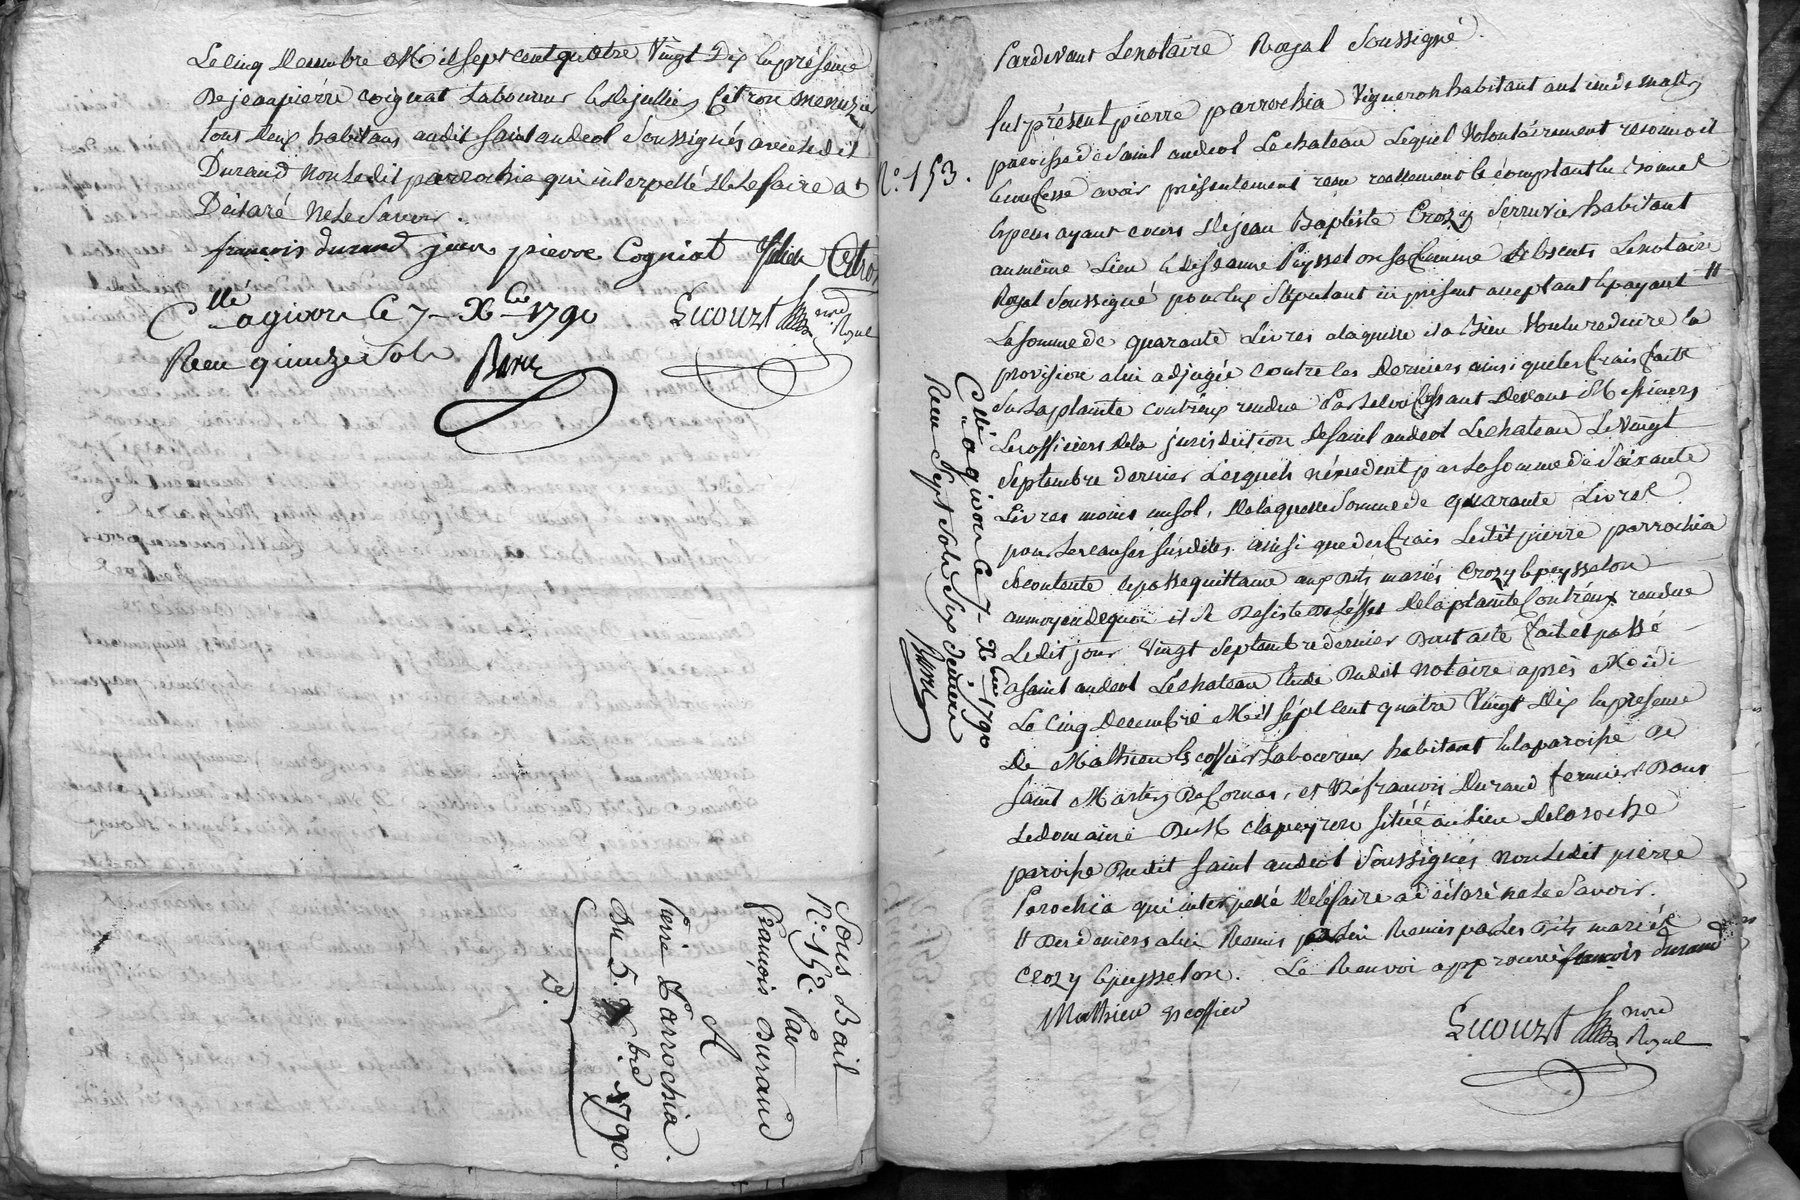 Le cinq Decembre Mil sept cent quatre Vingt Dix En présence
De jean pierre coignat Laboureur & de jullien Citron menuzier
tous deux habitans audit saint andeol Soussignés avec ledit
Durand Non Ledit parrochia qui interpellé de le faire a
Déclaré Ne le Savoir.
françois durand jean pierre Cogniat Julien Citron
Cllé a givors le 7 Xbre 1790
Recu quinze sols
Ecouzt nore Royal
Sous Bail
N.o 152. Par
François Durand
A
Pierre Parrochia.
Du 5. Xbre 1790.
D.
N.o 153.
Pardevant Le notaire Royal Soussigné.
fut présent pierre parrochia Vigneron habitant au lieu de
paroisse de Saint andeol Le chateau Lequel Volontairement reconnoit
& confesse avoir présentement recu reellement & comptant En Bonnes
Especes ayant cours De jean Baptiste Crozy Serrurier habitant
au même Lieu & de jeanne Peysselon sa femme absents Le notaire
Royal Soussigné pour Eux Stipulant ici présent acceptant & payant #
La somme de quarante Livres a laquelle il a Bien Voulu reduire la
provision a lui adjugée contre les Derniers ainsi que les frais faits
Sur La plainte contr'eux rendue Par Le confessant Devant Messieurs
Les officiers de la jurisdiction De saint andeol Le chateau Le Vingt
Septembre dernier Lesquels n'excedent pas La somme de Soixante
Livres moins un sol, De laquelle Somme de quarante Livres
pour Les causes Susdites ainsi que des frais Ledit pierre parrochia
Se contente & passe quittance aux dits mariés Crozy & peysselon
au moyen de quoi il se Desiste de l'effet de la plainte Contr'eux rendue
Ledit jour Vingt Septembre dernier Dont acte fait et passé
a saint andeol Le chateau Etude Dudit Notaire après Midi
Le cinq Decembre Mil sept cent quatre Vingt Dix En présence
De Mathieu Escoffier Laboureur habitant En la paroisse de
Saint Martin De Cornas, et De françois Durand fermier Dans
Le domaine De M clapeyron Situé au lieu De la roche
paroisse Dudit Saint andeol Soussignés non Ledit pierre
Parochia qui interpellé De le faire a déclaré ne le Savoir.
# Des deniers a lui Remis par Les Dits mariés
Crozy & peysselon. Le Renvoi approuvé françois durand
Mathieu Escoffier
Ecouzt nore Royal
Cllé a givors le 7 Xbre 1790
Recu Sept Sols Six deniers